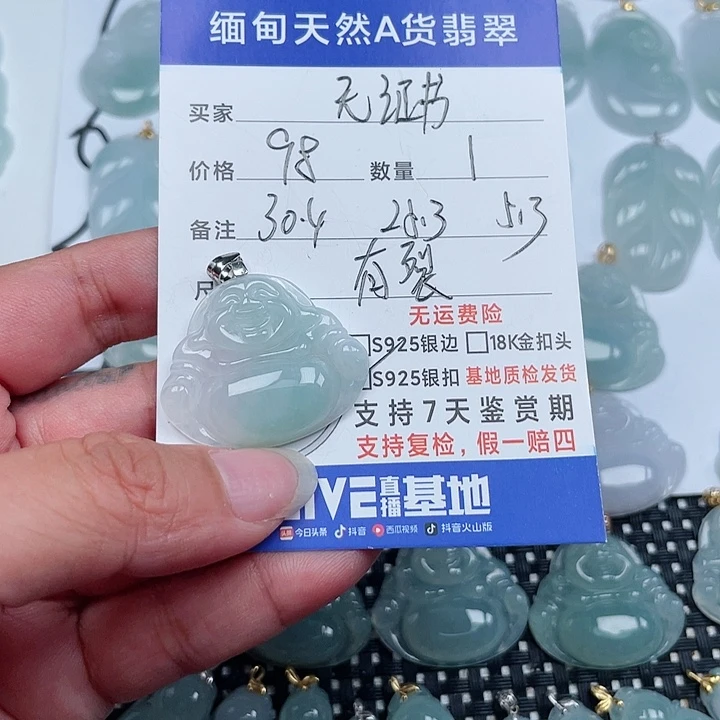 缅甸天然A货翡翠
买家 无证书
价格 98 数量 1
备注 30.4 28.3 5.3
尺 有裂
无运费险
S925银边 18K金扣头
S925银扣 基地质检发货
支持7天鉴赏期
支持复检,假一赔四
LIVE直播基地
头条 今日头条 抖音 西瓜视频 抖音火山版